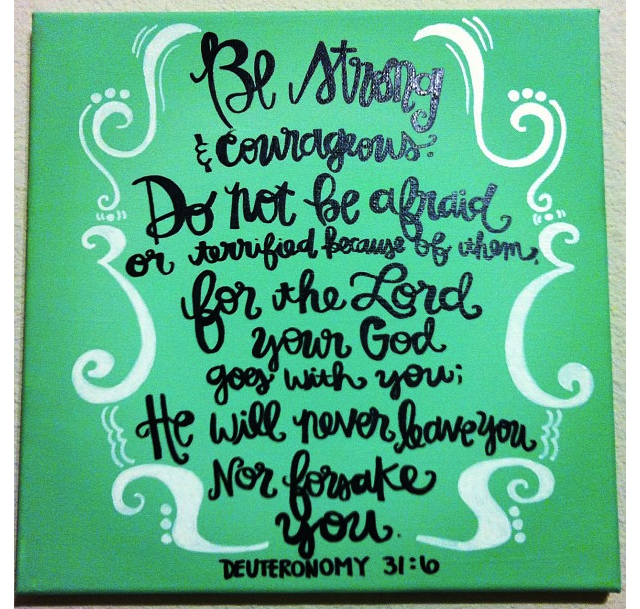 Be Strong
& courageous.
Do not be afraid
or terrified because of them,
for the Lord
your God
goes with you;
He will never leave you
Nor forsake
you.
DEUTERONOMY 31:6